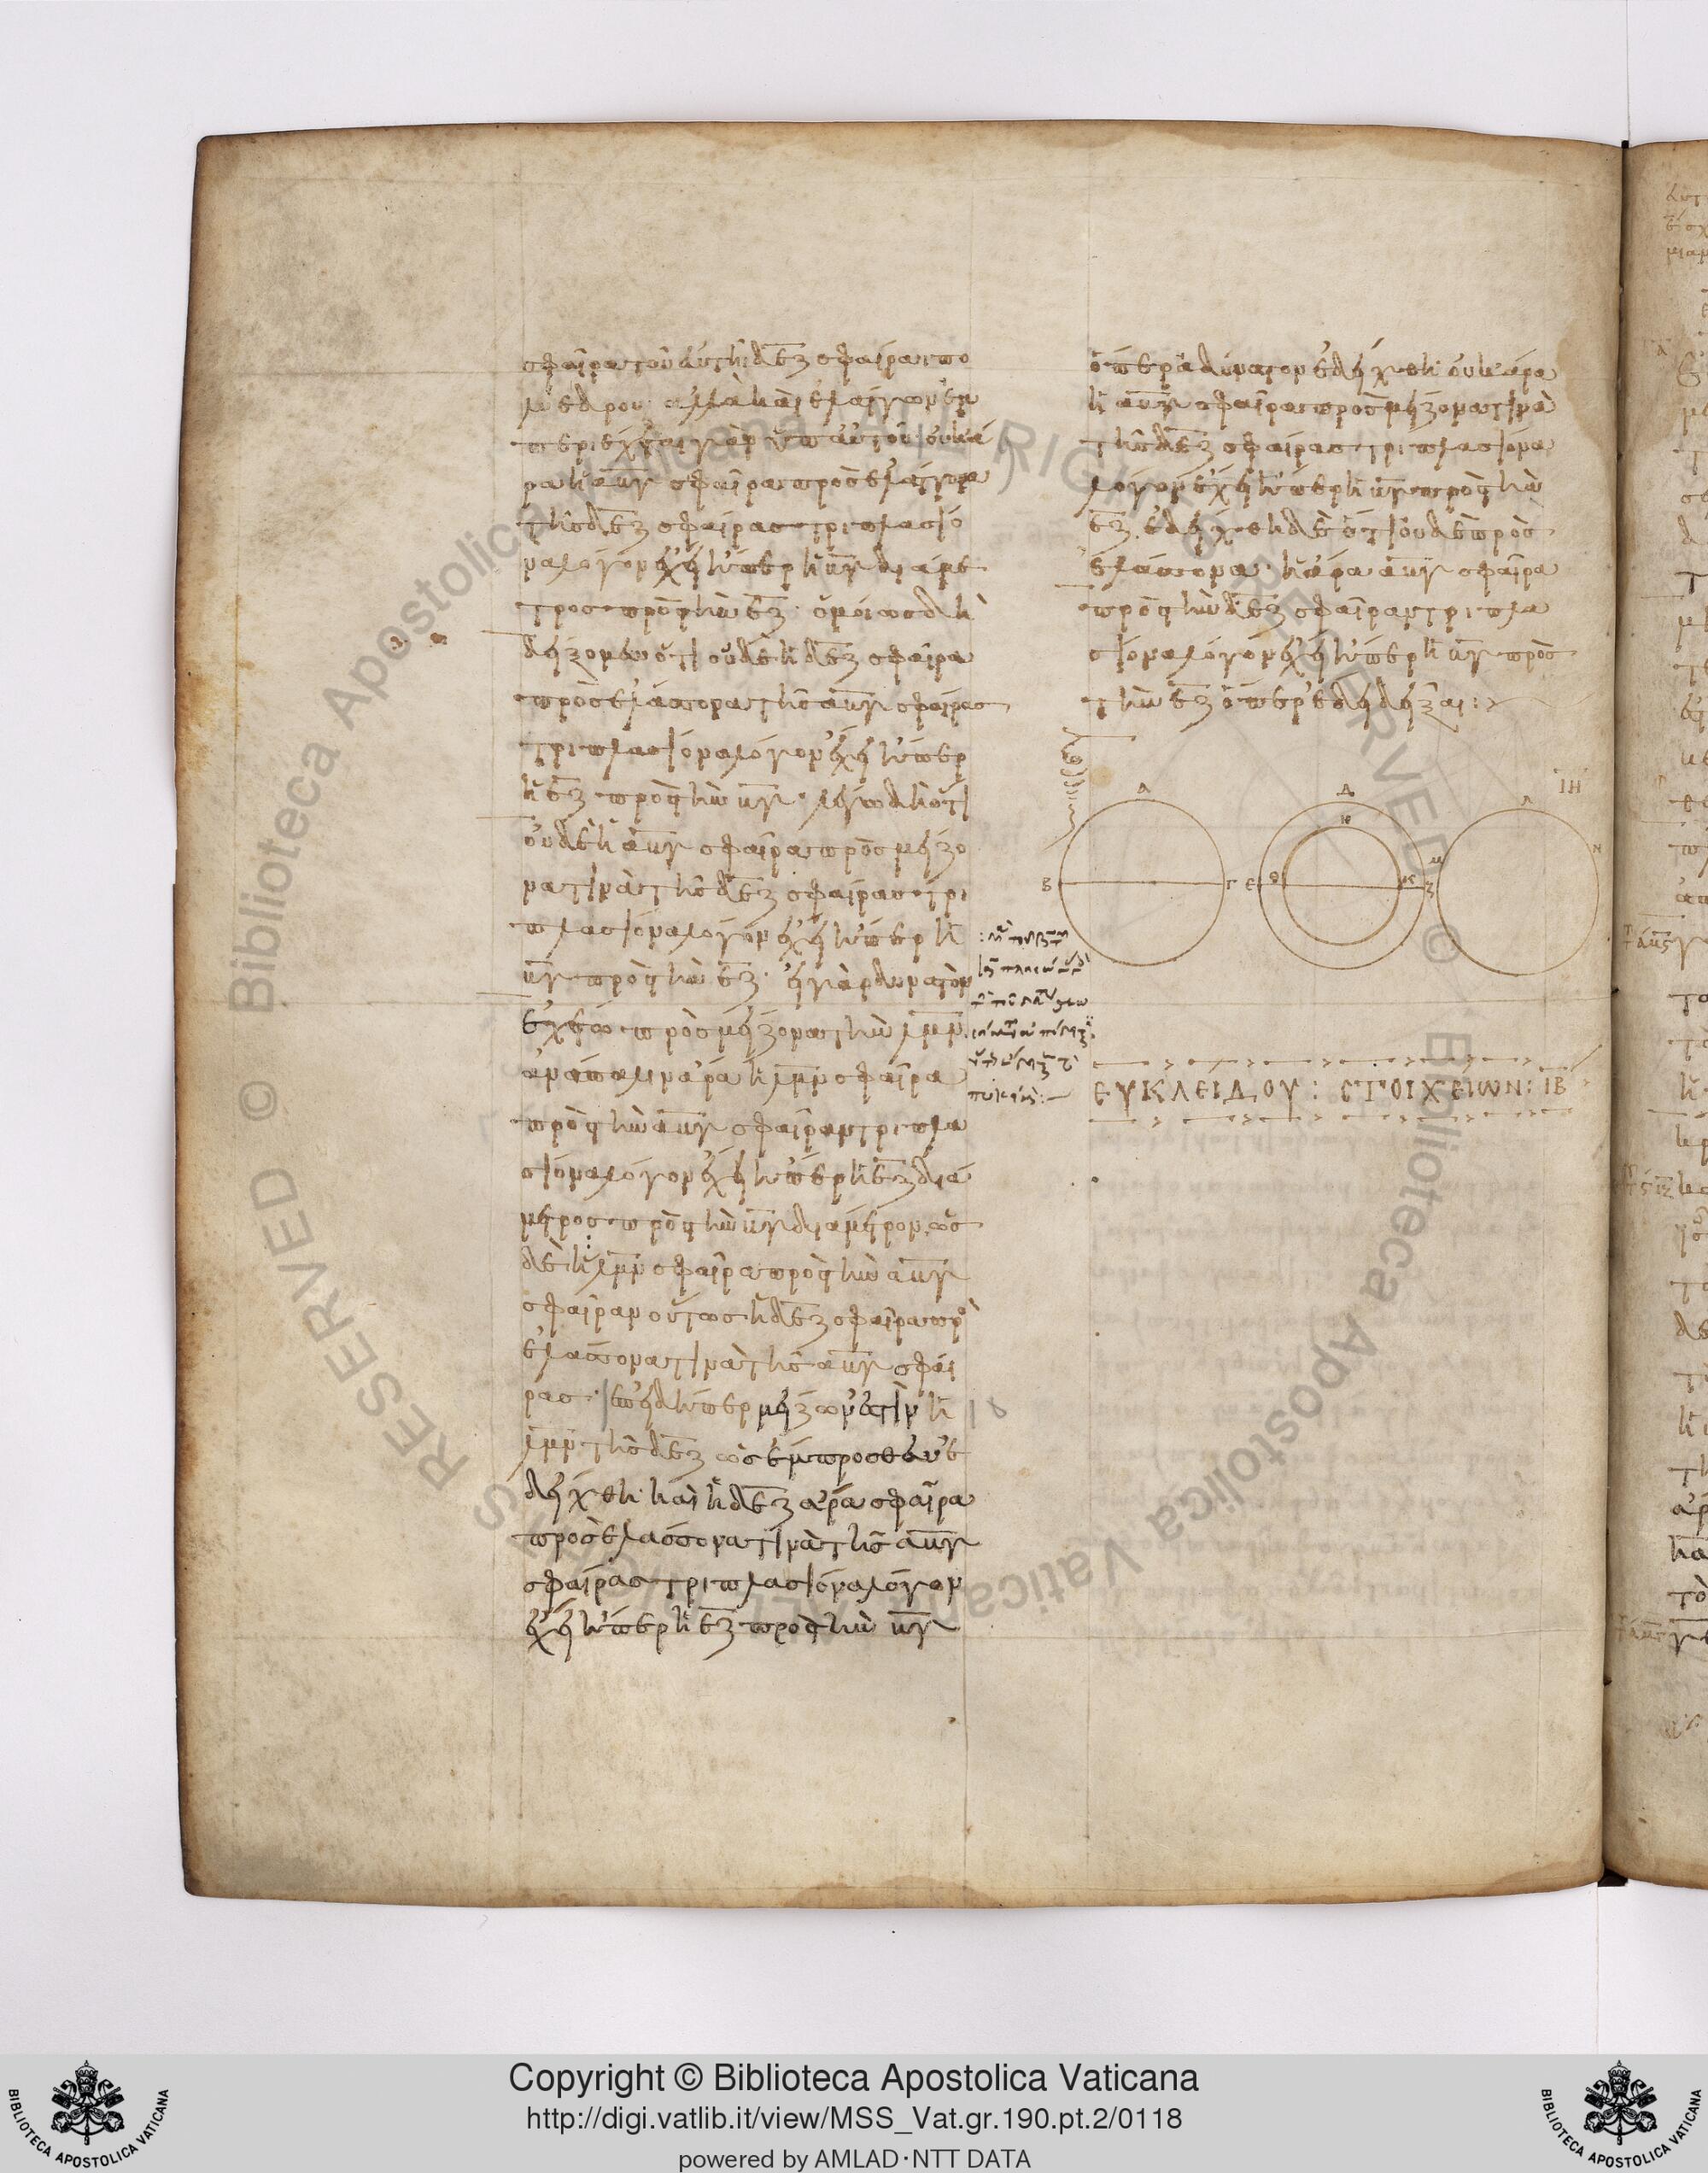 σφαῖρα τοῦ ἐν τῆι ΔΕΖ σφαίραι πο
λυέδρου· ἀλλὰ καὶ ἐλάττων ἐμ
περιέχεται γὰρ ὑπ αὐτοῦ οὐκ ἄ
ρα ἡ ΑΒΓ σφαῖρα πρὸς ἐλάττονα
τῆς ΔΕΖ σφαίρας τριπλασίο
να λόγον ἔχει ἤπερ ἡ ΒΓ διάμε
τρος πρὸς τὴν ΕΖ· ὁμοίως δὴ
δείξομεν ὅτι οὐδὲ ἡ ΔΕΖ σφαῖρα
πρὸς ἐλάττονα τῆς ΑΒΓ σφαίρας
τριπλασίονα λόγον ἔχει ἤπερ
ἡ ΕΖ πρὸς τὴν ΒΓ· λέγω δὴ ὅτι
οὐδὲ ἡ ΑΒΓ σφαῖρα πρὸς μείζο
να τινὰ τῆς ΔΕΖ σφαίρας τρι
πλασίονα λόγον ἔχει ἤπερ ἡ
ΒΓ πρὸς τὴν ΕΖ· εἰ γὰρ δυνατὸν
ἐχέτω πρὸς μείζονα τὴν ΛΜΝ
ἀνάπαλιν ἄρα ἡ ΛΜΝ σφαῖρα
πρὸς τὴν ΑΒΓ σφαῖραν τριπλα
σίονα λόγον ἔχει ἤπερ ἡ ΕΖ διά
μετρος πρὸς τὴν ΒΓ διάμετρον ὡς
δὲ ἡ ΛΜΝ σφαῖρα πρὸς τὴν ΑΒΓ
σφαῖραν οὕτως ἡ ΔΕΖ σφαῖρα πρὸς
ἐλάσσονα τινὰ τῆς ΑΒΓ σφαί
ρας· ἐπειδήπερ μείζων ἐστὶν ἡ
ΛΜΝ τῆς ΔΕΖ ὡς ἔμπροσθεν ἐ
δείχθη· καὶ ἡ ΔΕΖ ἄρα σφαῖρα
πρὸς ἐλάσσονα τινὰ τῆς ΑΒΓ
σφαίρας τριπλασίονα λόγον
ἔχει ἤπερ ἡ ΕΖ πρὸς τὴν ΒΓ
ὅπερ ἀδύνατον ἐδείχθη οὐκ ἄρα
ἡ ΑΒΓ σφαῖρα πρὸς μείζονα τινὰ
τῆς ΔΕΖ σφαίρας τριπλασίονα
λόγον ἔχει ἤπερ ἡ ΒΓ πρὸς τὴν
ΕΖ· ἐδείχθη δὲ ὅτι οὐδὲ πρὸς
ἐλάττονα· ἡ ἄρα ΑΒΓ σφαῖρα
πρὸς τὴν ΔΕΖ σφαῖραν τριπλα
σίονα λόγον ἔχει ἤπερ ἡ ΒΓ πρὸς
τὴν ΕΖ ὅπερ ἔδει δεῖξαι :
ΙΗ
Α
Β
Γ
Δ
Ε
Ζ
Θ
Λ
Μ
Ν
ΕΥΚΛΕΙΔΟΥ : ΣΤΟΙΧΕΙΩΝ : ΙΒ
© Biblioteca Apostolica Vaticana ALL RIGHTS RESERVED
Copyright © Biblioteca Apostolica Vaticana
http://digi.vatlib.it/view/MSS_Vat.gr.190.pt.2/0118
powered by AMLAD·NTT DATA
BIBLIOTECA APOSTOLICA VATICANA
BIBLIOTECA APOSTOLICA VATICANA